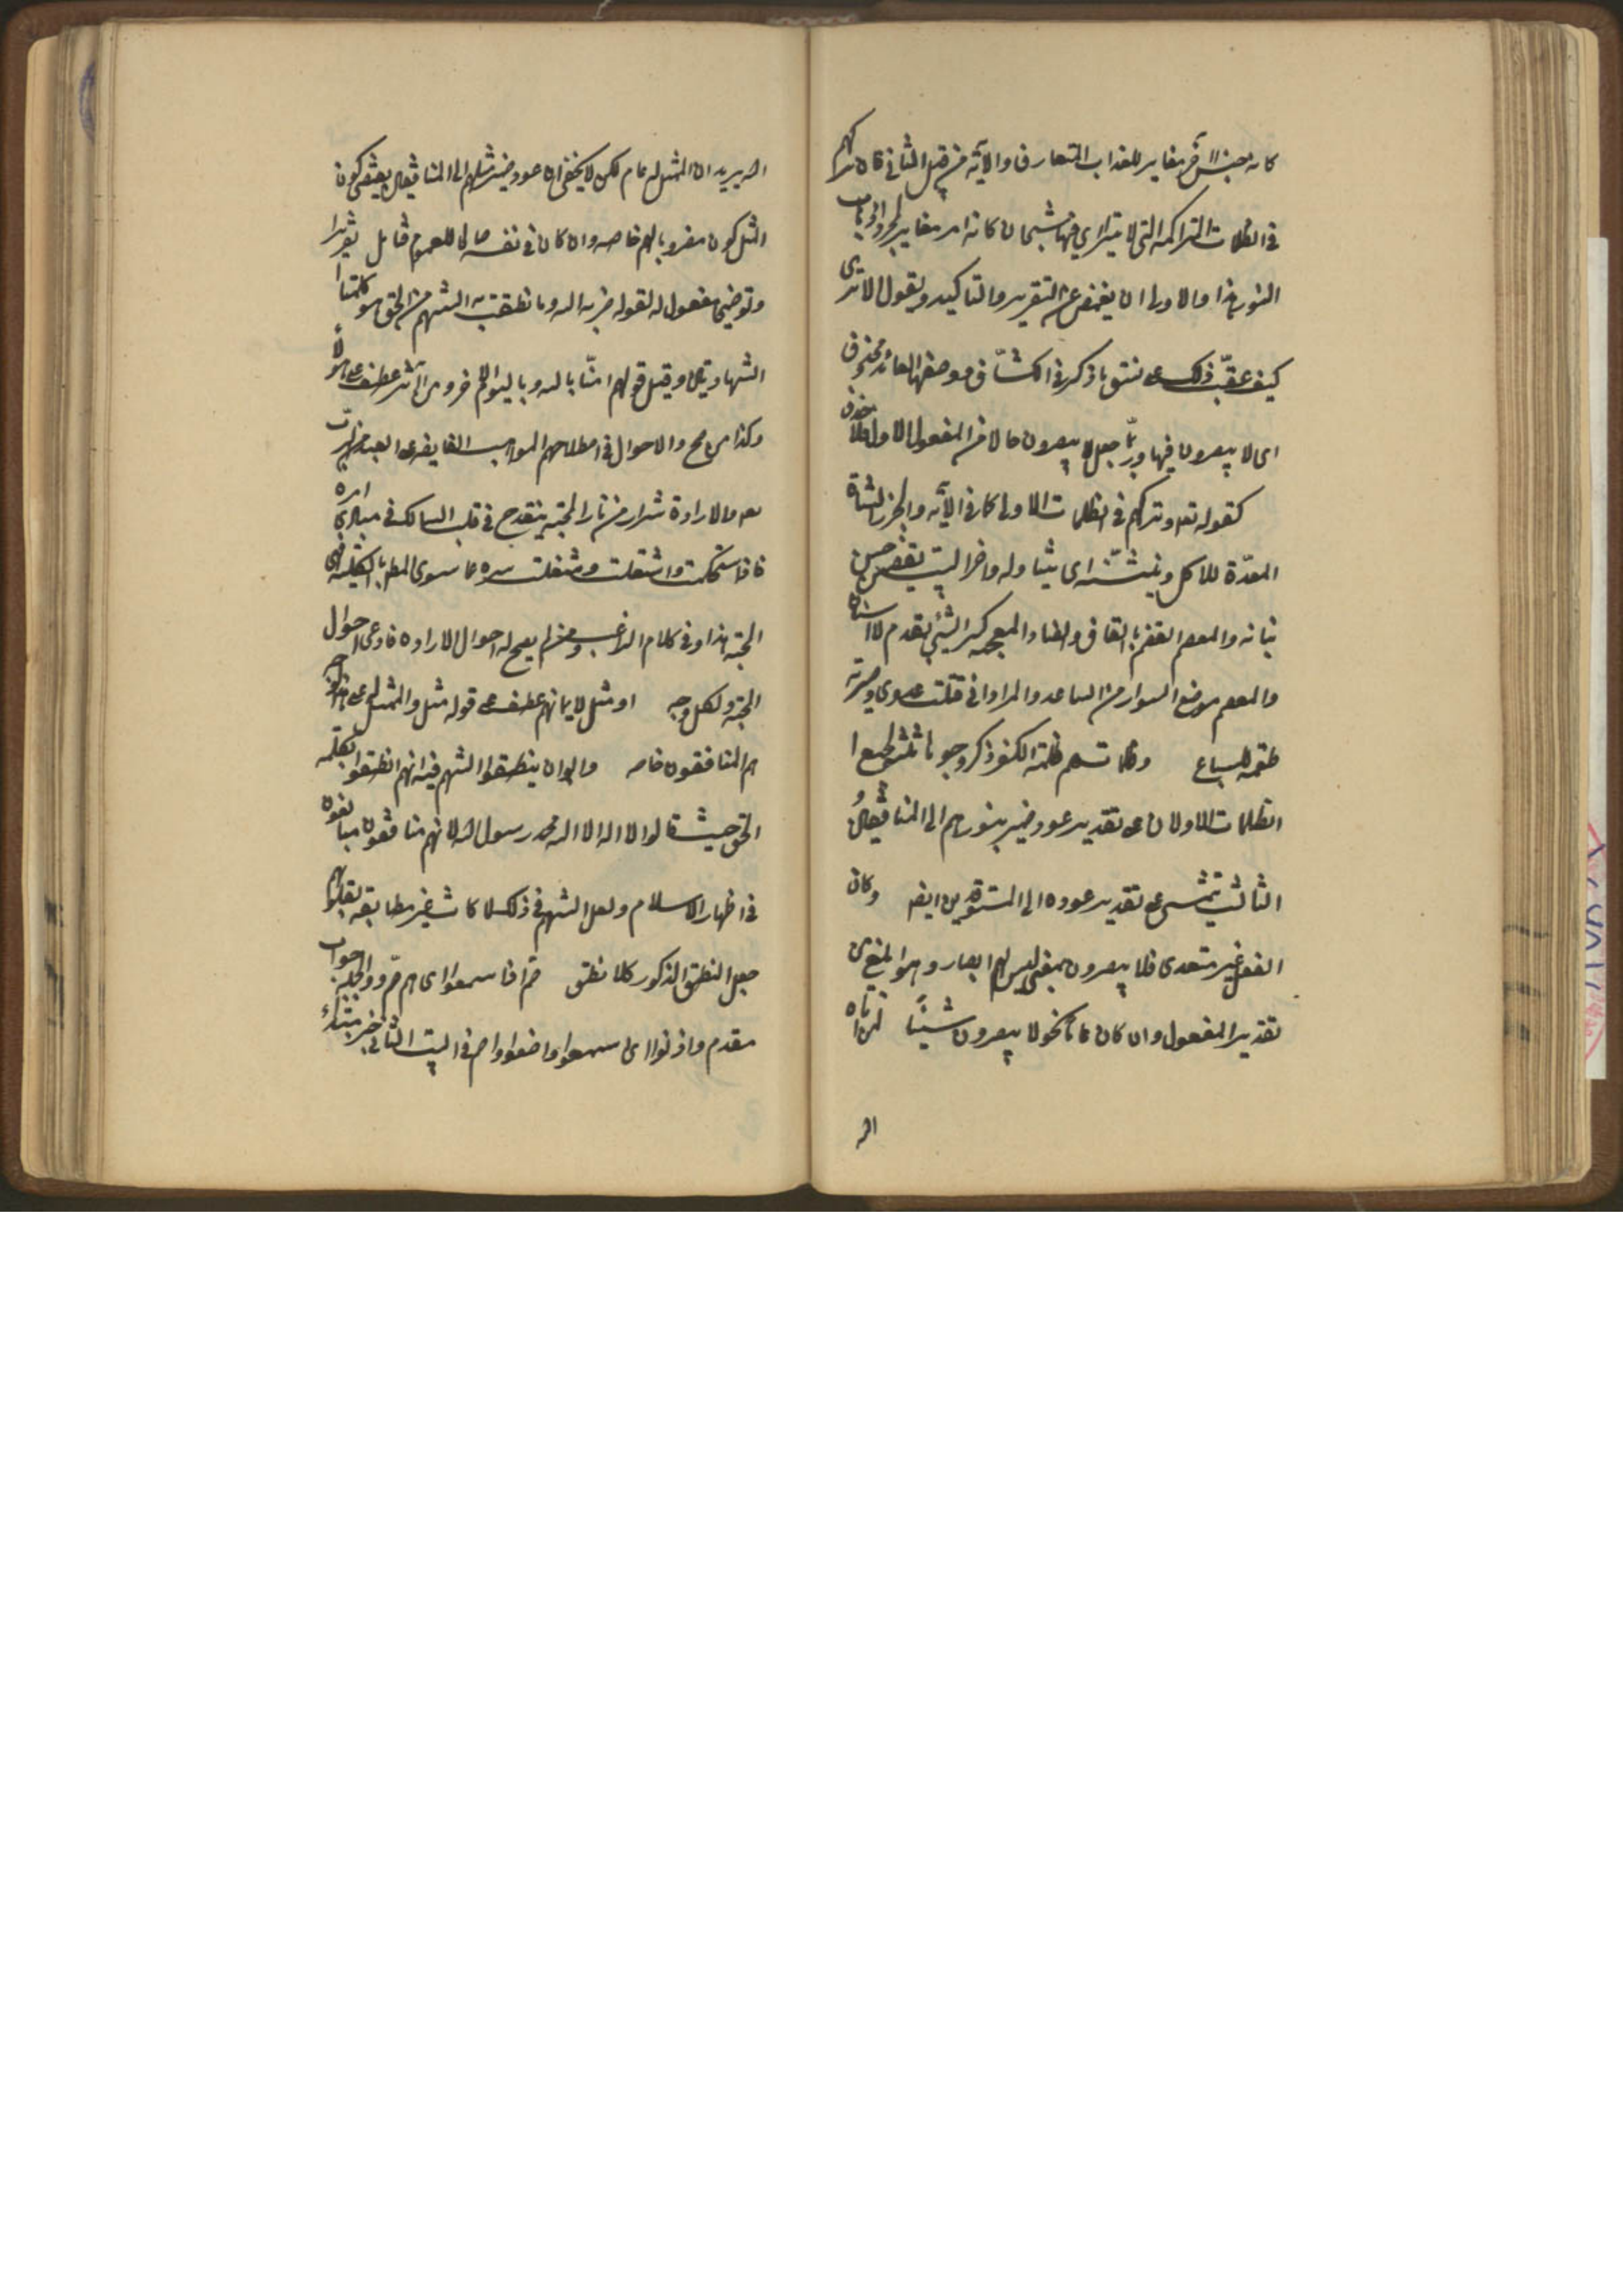 كانه جنس آخر مغاير للعذاب المتعارف والآية من قبيل الثاني فان تركهم
في الظلمات المتراكمة التي لا يترااى فيها شبحان كانه امر مغاير لمجرد اذهاب
النور هذا والاولى ان يغمض عن التقرير والتاكيد ويقول الا ترى
كيف عقب ذلك على نسق ما ذكره في الكشاف ووصفها العائد محذوف
اى لا يبصرون فيها وربما جعل لا يبصرون حالا من المفعول الاول فلا حذف
كقوله تعه وتركهم في الظلمات الاولى كما في الآية والجزر الشاة
المعدة للاكل وينشنه اى يتناوله واخر البيت يقضمن حسن
بنانه والمعصم القضم بالقاف والضاد المعجمة كسر الشئ بمقدم الاسنان
والمعصم موضع السوار من الساعد والمراد انى قتلت عدوى وصيرته
طعمة للسباع وظلمات هم ظلمة الكفر ذكر وجوها ثلثة لجمع
الظلمات الاولان على تقدير عود ضمير بنورهم الى المنافقين و
الثالث يتمشى على تقدير عوده الى المستوقدين ايضا وكان
الفعل غير متعدى فلا يبصرون بمعنى ليس لهم ابصار وهو ابلغ من
تقدير المفعول وان كان عاما نحو لا يبصرون شيئا
الله
الله يريد ان الممثل له عام لكن لا يخفى ان عود ضمير مثلهم الى المنافقين يقتضى كون
المثل كون مضروبا لهم خاصة وان كان في نفسه صالحا للعموم فتامل تقريرا
وتوضيحا مفعول له لقوله ضربه الله وما نطقت به السنتهم من الحق هو كلمتا
الشهادتين وقيل قولهم امنا بالله وباليوم الاخر ومن اثر عطف على هؤلاء
وكذا من صح والاحوال في اصطلاحهم المواهب الفايضة على العبد من ربه
والارادة شرار من نار المحبة ينقدح في قلب السالك في مبادى امره
فاذا استحكمت واشتعلت وشغلت سره عما سوى المطلوب بالكلية فهى
المحبة هذا وفي كلام الراغب ومن لم يصح له احوال الارادة فادعى احوال
المحبة ولكل وجه او مثل لايمانهم عطف على قوله مثل والممثل له على هذا
هم المنافقون خاصة وابوا ان ينطقوا السنتهم فيه انهم انطقوا بكلمة
الحق حيث قالوا لا اله الا الله محمد رسول الله لانهم منافقون مبالغون
في اظهار الاسلام ولعل السنتهم في ذلك لما كانت غير مطابقة لقلوبهم
جعل النطق المذكور كلا نطق صم اذا سمعوا اى هم صم والجملة جواب
مقدم واذنوا اى اسمعوا واصغوا واصم في البيت الثاني خبر مبتدأ